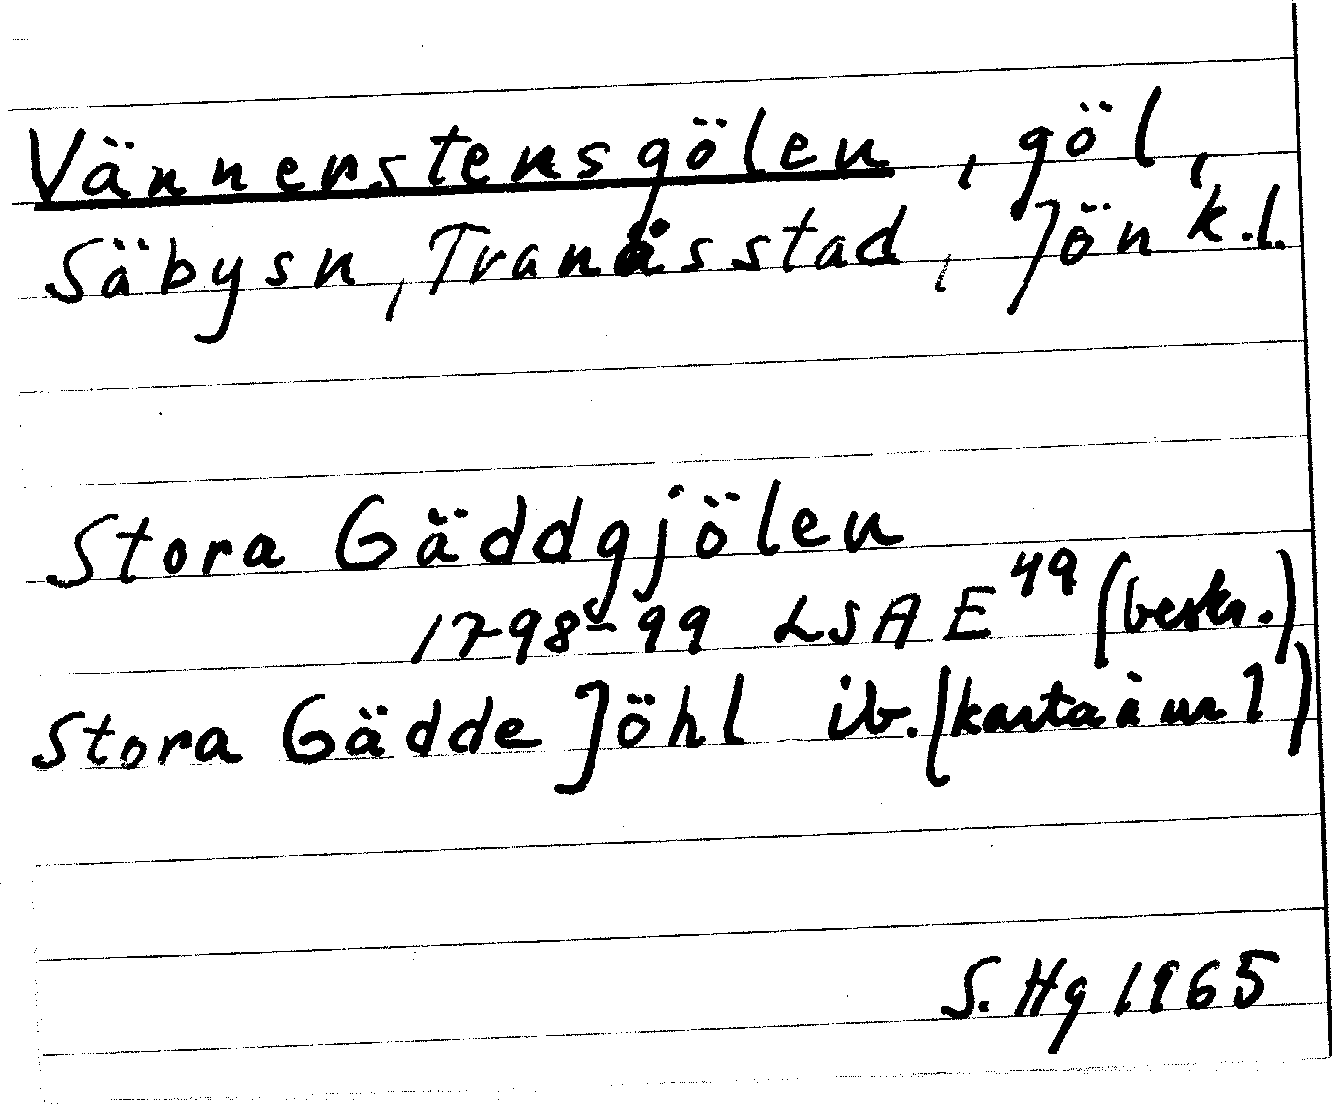 Vännerstensgölen, göl,
Säbysn, Tranås stad, Jönk.l.
Stora Gäddgjölen
1798-99 LSA E 49 (beskr.)
Stora Gädde Jöhl ib. (karta à nr 1)
S. Hg 1965